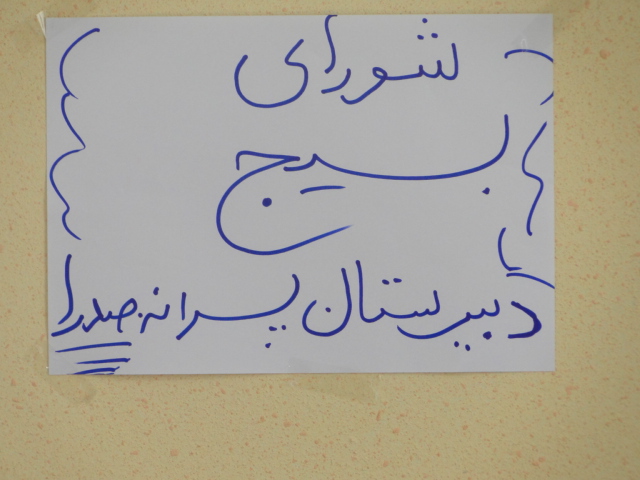 شورای
بسیج
دبیرستان پسرانه صدرا